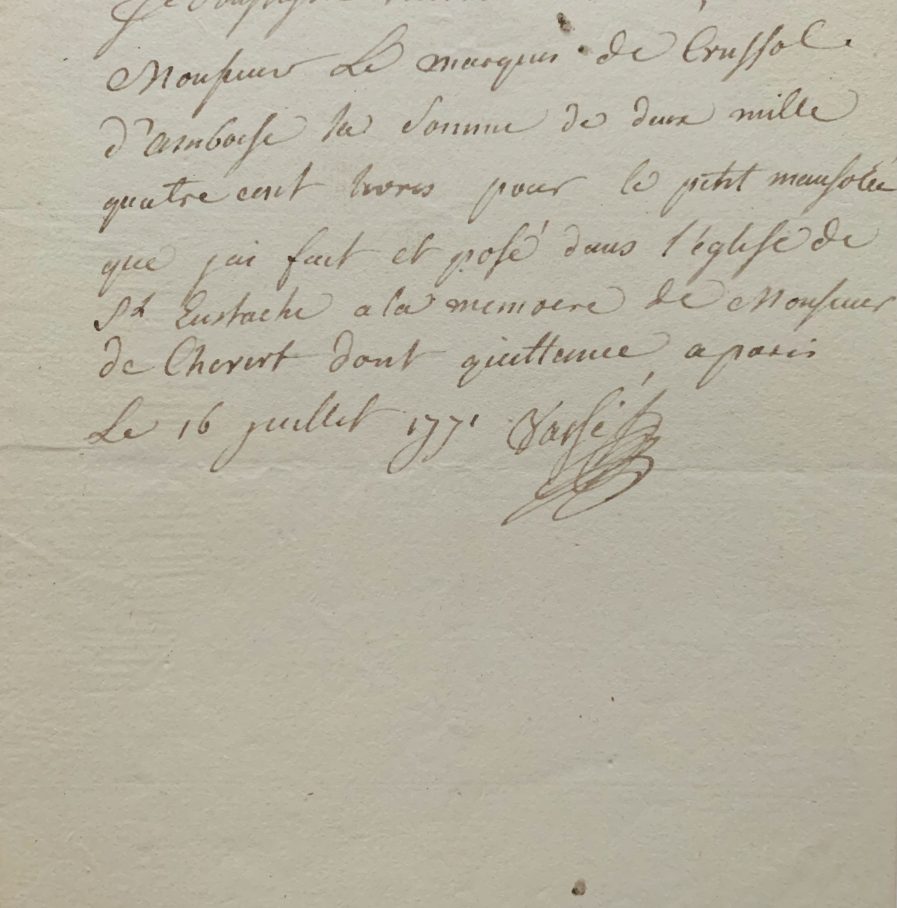 Je soussigné
Monsieur Le marquis de Crussol
d'amboise la somme de deux mille
quatre cent livres pour le petit mausolée
que jai fait et posé dans l'église de
St Eustache a la memoire de Monsieur
de Chevert dont quittance, a paris
Le 16 juillet 1771 Vassé